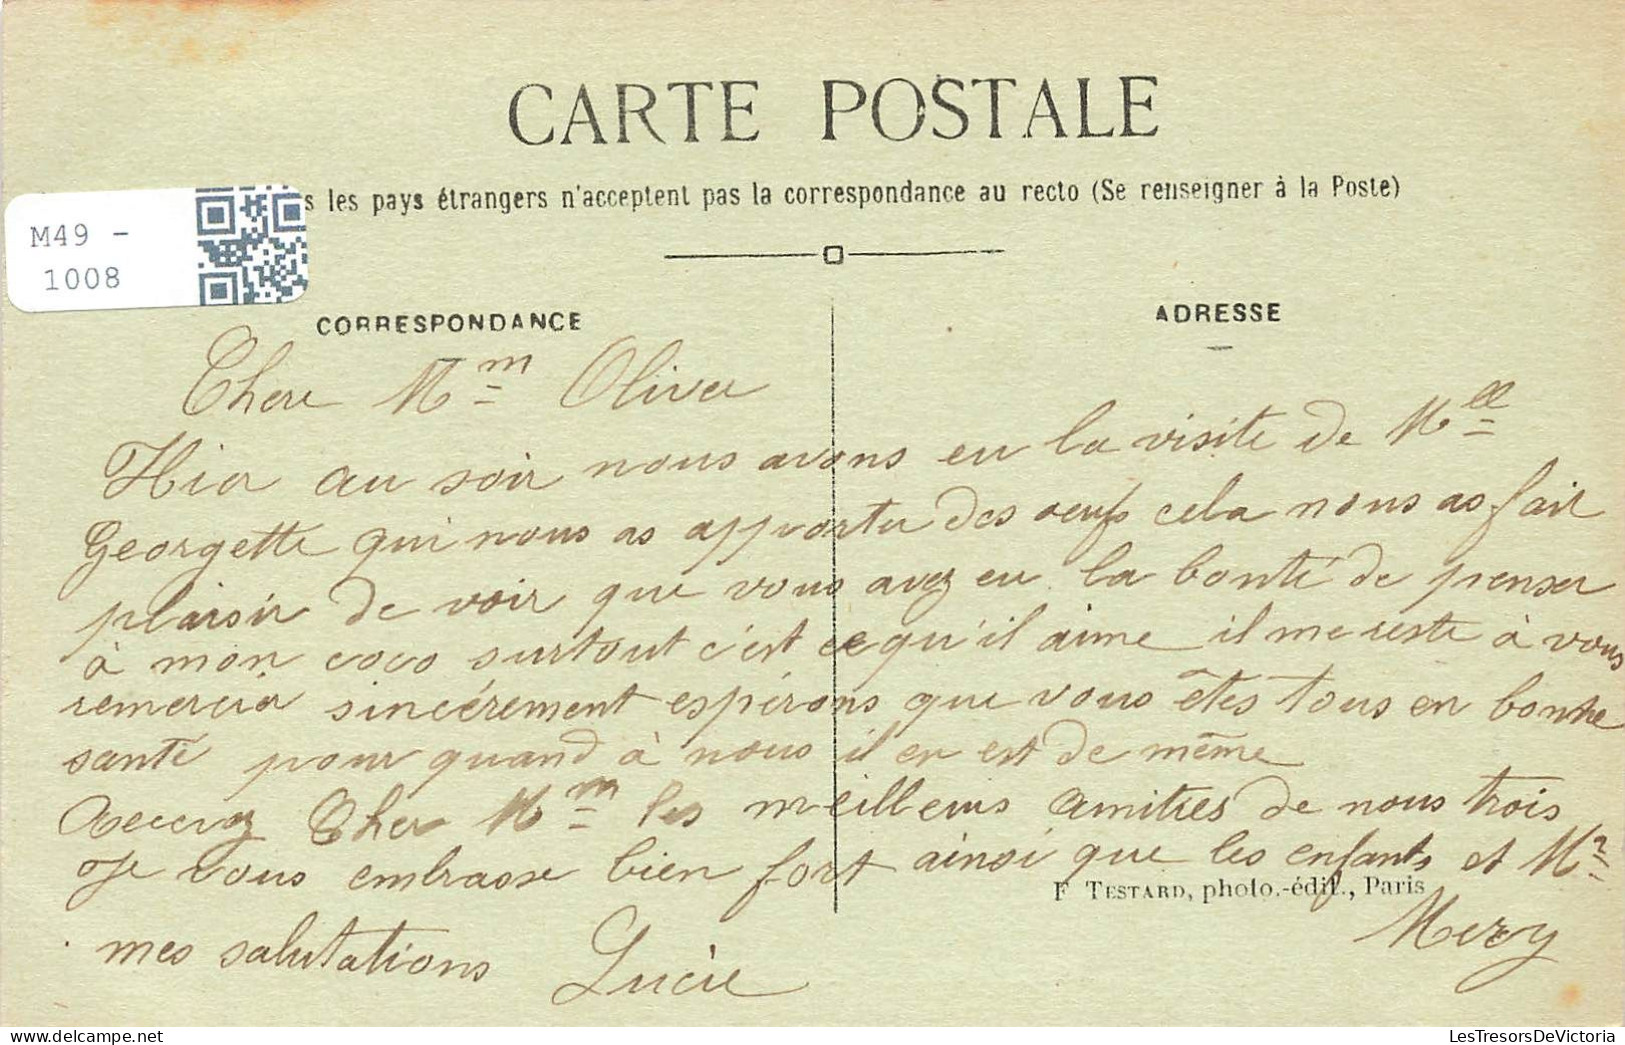 CARTE POSTALE
s les pays étrangers n'acceptent pas la correspondance au recto (Se renseigner à la Poste)
M49 -
1008
CORRESPONDANCE
ADRESSE
Chere Mm Oliver
Hier au soir nous avons eu la visite de Mlle
Georgette qui nous as apporter des oeufs cela nous as fait
plaisir de voir que vous avez eu la bonté de penser
à mon coco surtout c'est ce qu'il aime il me reste à vous
remercier sincérement espérons que vous êtes tous en bonne
santé pour quand à nous il en est de même
Recevez Cher Mm les meilleurs amitiés de nous trois
Je vous embrasse bien fort ainsi que les enfants et Mr
F. TESTARD, photo.-édit., Paris
Mery
mes salutations Lucie
LesTresorsDeVictoria | delcampe.net